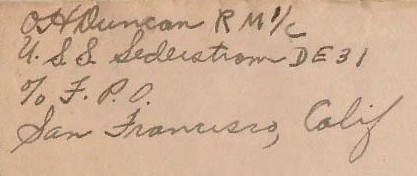 O H Duncan R M 1/c
U. S. S. Sederstrom DE 31
% F. P. O.
San Francisco, Calif